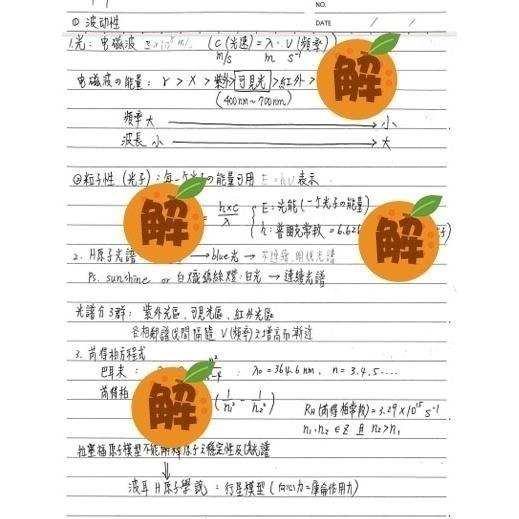 NO.
① 波动性
DATE / /
1.光：电磁波 3×10⁸ m/s C (光速) = λ · ν (頻率)
m/s m s⁻¹
解
电磁波の能量：γ > X > 紫外 > 可見光 > 紅外 >
(400nm~700nm)
頻率 大 → 小
波長 小 → 大
②粒子性 (光子)：每一个光子の能量可用 E=hν 表示
解 = h×c/λ { E：光能 (一个光子の能量)
h：普朗克常数 = 6.626 解
2. H原子光譜 → blue光 → 不連續、明線光譜
Ps. sunshine or 白熾鎢絲燈：白光 → 連續光譜
光譜分3群：紫外光區、可見光區、紅外光區
各相鄰譜線間隔隨 ν(頻率)之增高而漸近
3. 芮得柏方程式
巴耳末： n²/ -4 ; λ₀ = 364.6 nm, n = 3.4.5....
芮得柏 解 (1/n₁² - 1/n₂²)
R_H (芮得柏常数) = 3.29×10¹⁵ s⁻¹
n₁、n₂ ∈ Z 且 n₂>n₁
拉塞福原子模型不能解釋原子之穩定性及 光譜
波耳 H原子學說：行星模型 (向心力=庫侖作用力)